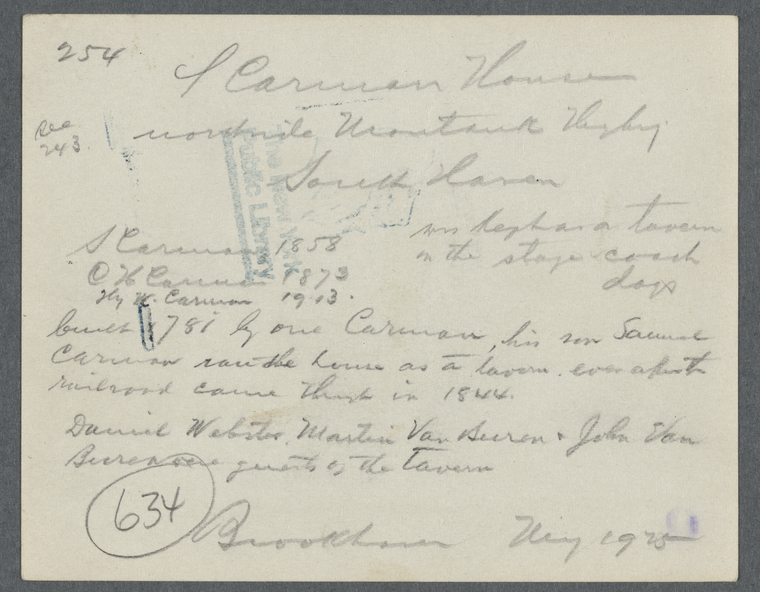 254
S Carman House
northside Montauk Highy
see
243.
South Haven
The New York
Public Library
was kept as a tavern
in the stage coach
days
S Carman 1858
O H Carman 1873
Hy W. Carman 1913.
built 178 by one Carman, his son Samuel
Carman ran the house as a tavern. even after
railroad came through in 1844.
Daniel Webster, Martin Van Buren & John Van
Buren were guests of the tavern
634
Brookhaven May 1925